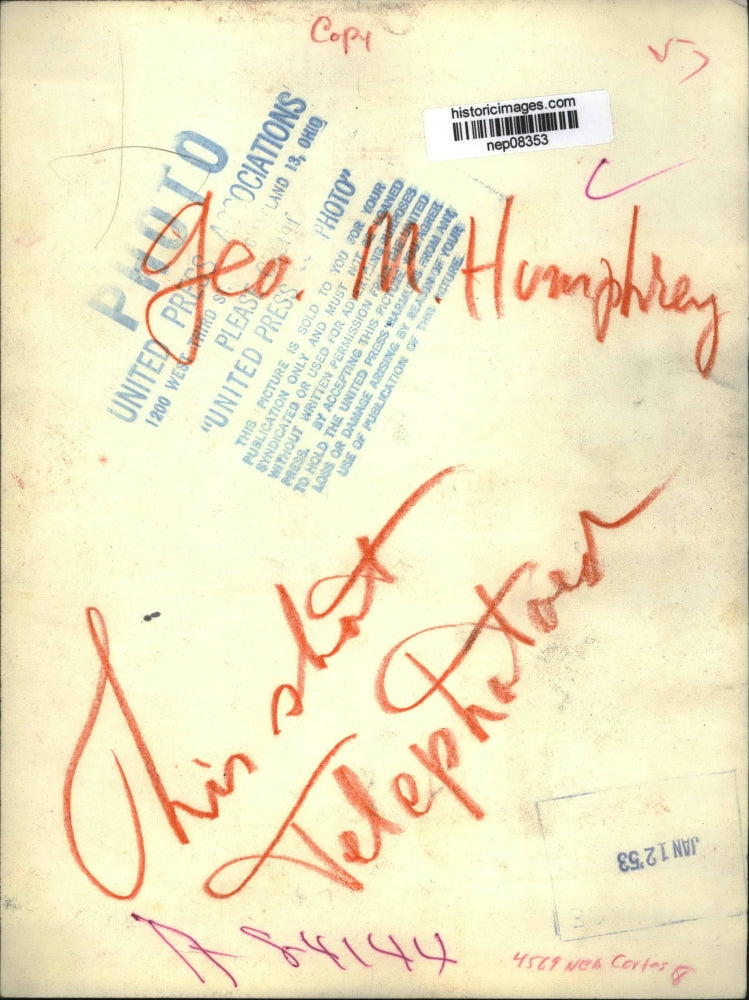 Copy
historicimages.com
nep08353
PHOTO
UNITED PRESS ASSOCIATIONS
1200 WEST THIRD LAND 13, OHIO
PLEASE
"UNITED PRESS PHOTO"
THIS PICTURE IS SOLD TO YOU FOR YOUR
PUBLICATION ONLY AND MUST NOT BE LOANED
SYNDICATED OR USED FOR ADVERTISING PURPOSES
WITHOUT WRITTEN PERMISSION FROM THE UNITED
PRESS. BY ACCEPTING THIS PICTURE YOU AGREE
TO HOLD THE UNITED PRESS HARMLESS FROM ANY
LOSS OR DAMAGE ARISING BY REASON OF YOUR
USE OF PUBLICATION OF THIS PICTURE.
Geo. M. Humphrey
This shot
Telephotoed
JAN 12 '53
A-84144
4569 NEA